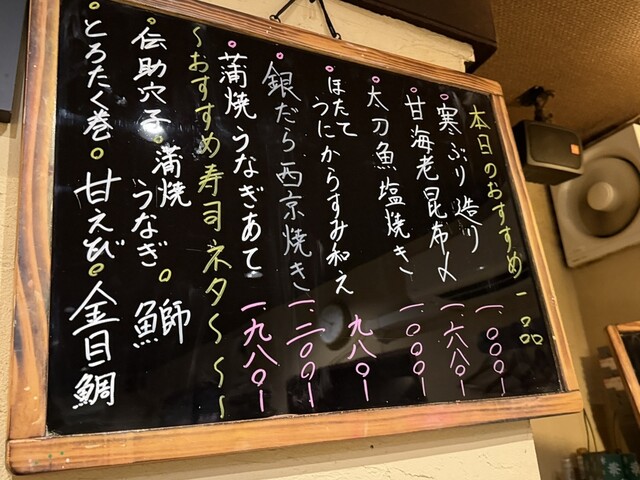 本日のおすすめ一品
寒ぶり造り 一、〇〇〇ー
甘海老昆布〆 一、六八〇ー
太刀魚塩焼き 一、〇〇〇ー
ほたて
うにからすみ和え 九八〇ー
銀だら西京焼き 一、二〇〇ー
蒲焼うなぎあて 一九八〇ー
～おすすめ寿司ネタ～～～
伝助穴子。蒲焼うなぎ。鰤
とろたく巻。甘えび。金目鯛